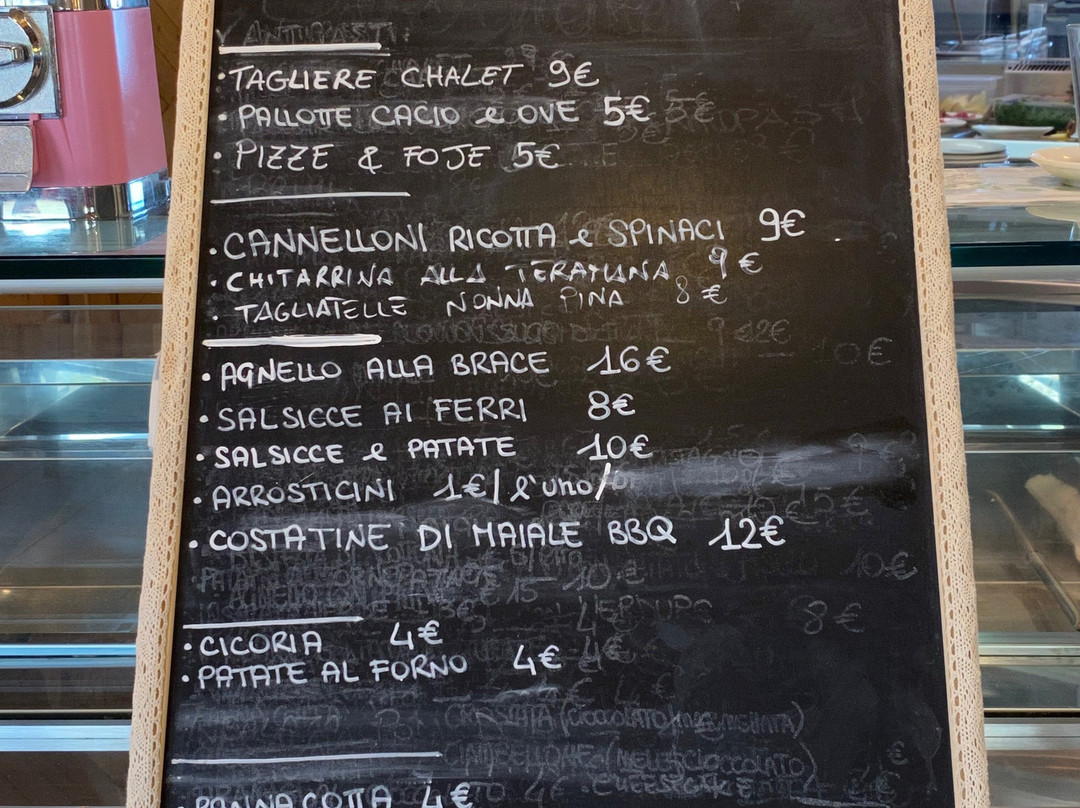 ANTIPASTI:
• TAGLIERE CHALET 9€
• PALLOTTE CACIO e OVE 5€
• PIZZE & FOJE 5€
• CANNELLONI RICOTTA e SPINACI 9€
• CHITARRINA ALLA TERAMANA 9€
• TAGLIATELLE NONNA PINA 8€
• AGNELLO ALLA BRACE 16€
• SALSICCE AI FERRI 8€
• SALSICCE e PATATE 10€
• ARROSTICINI 1€/l'uno/
• COSTATINE DI MAIALE BBQ 12€
• CICORIA 4€
• PATATE AL FORNO 4€
PANNA COTTA 4€